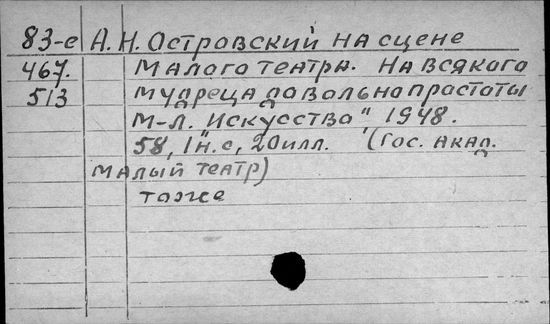 83-е А. Н. Островский на сцене
467. Малого театра. На всякого
513 мудреца довольно простоты
М-Л. Искусство" 1948.
58, 1н.с, 20илл. (Гос. акад.
малый театр)
тоже